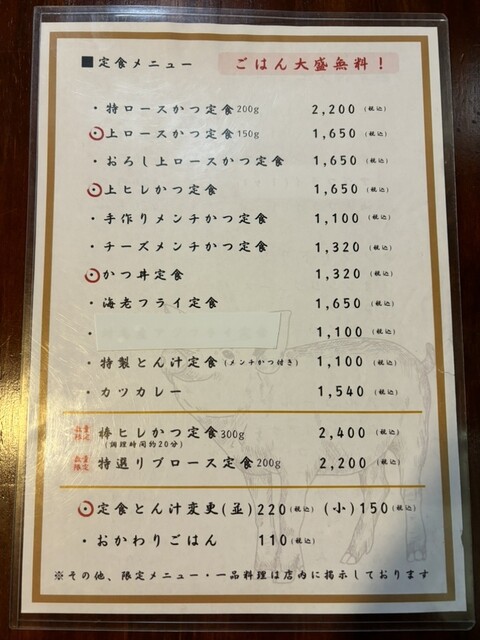 ■定食メニュー ごはん大盛無料！
・特ロースかつ定食200g 2,200(税込)
上ロースかつ定食150g 1,650(税込)
・おろし上ロースかつ定食 1,650(税込)
上ヒレかつ定食 1,650(税込)
・手作りメンチかつ定食 1,100(税込)
・チーズメンチかつ定食 1,320(税込)
かつ丼定食 1,320(税込)
・海老フライ定食 1,650(税込)
・ 1,100(税込)
・特製とん汁定食(メンチかつ付き) 1,100(税込)
・カツカレー 1,540(税込)
数量限定 棒ヒレかつ定食300g 2,400(税込)
(調理時間約20分)
数量限定 特選リブロース定食200g 2,200(税込)
定食とん汁変更(並)220(税込) (小)150(税込)
・おかわりごはん 110(税込)
※その他、限定メニュー・一品料理は店内に掲示しております